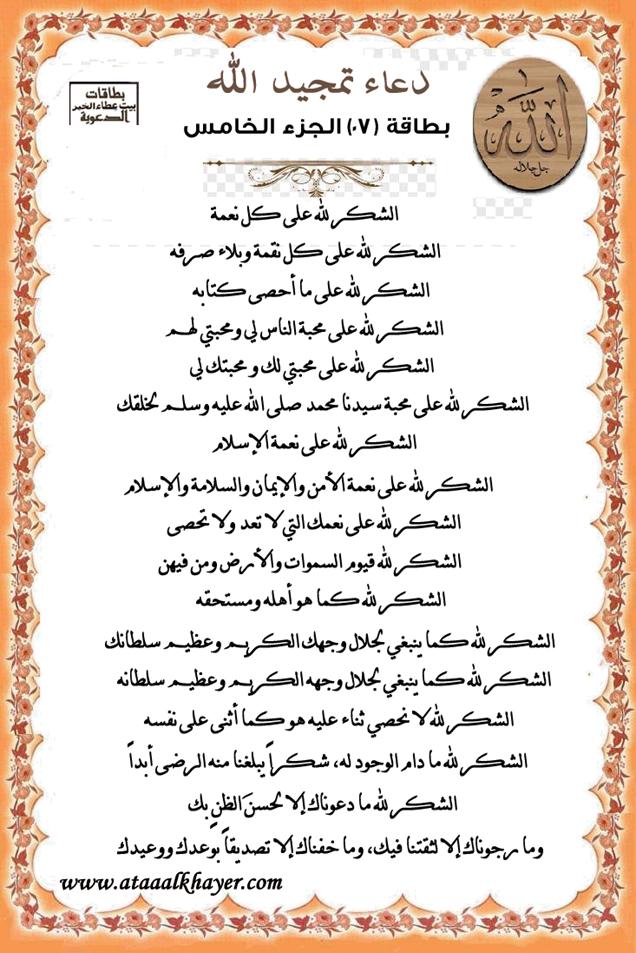 دعاء تمجيد الله
بطاقة (٠٧) الجزء الخامس
بطاقات
بيت عطاء الخير
الدعوية
الله
جل جلاله
الشكر لله على كل نعمة
الشكر لله على كل نقمة وبلاء صرفه
الشكر لله على ما أحصى كتابه
الشكر لله على محبة الناس لي ومحبتي لهم
الشكر لله على محبتي لك ومحبتك لي
الشكر لله على محبة سيدنا محمد صلى الله عليه وسلم لخلقك
الشكر لله على نعمة الإسلام
الشكر لله على نعمة الأمن والإيمان والسلامة والإسلام
الشكر لله على نعمك التي لا تعد ولا تحصى
الشكر لله قيوم السموات والأرض ومن فيهن
الشكر لله كما هو أهله ومستحقه
الشكر لله كما ينبغي لجلال وجهك الكريم وعظيم سلطانك
الشكر لله كما ينبغي لجلال وجهه الكريم وعظيم سلطانه
الشكر لله لا نحصي ثناء عليه هو كما أثنى على نفسه
الشكر لله ما دام الوجود له، شكراً يبلغنا منه الرضى أبداً
الشكر لله ما دعوناك إلا لحسنَ الظنِ بك
وما رجوناك إلا لثقتنا فيك، وما خفناك إلا تصديقاً بوعدك ووعيدك
www.ataaalkhayer.com